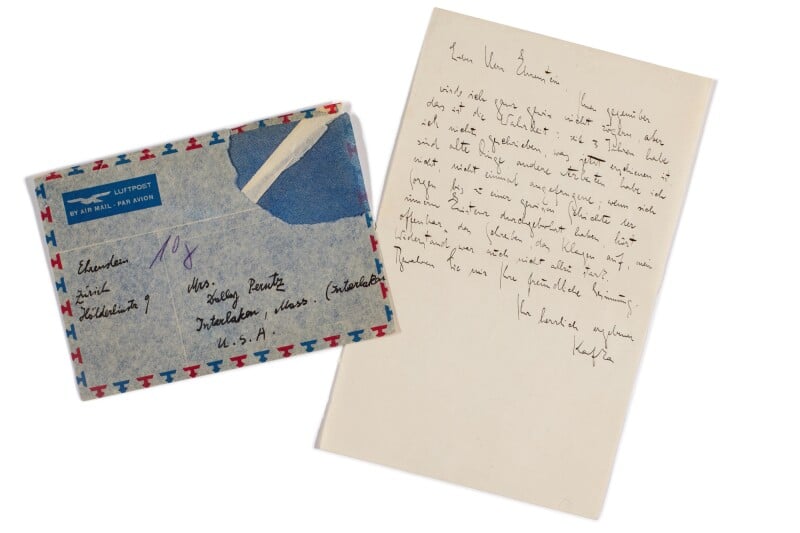 LUFTPOST
BY AIR MAIL - PAR AVION
10 g
Ehrenstein
Zürich
Hölderlinstr 9
Mrs.
Dolley Perutz
Interlaken, Mass. (Interlaken
U.S.A.
Lieber Herr Ehrenstein,
Ihnen gegenüber
würde ich ganz gewiss nicht zögern, aber
das ist die Wahrheit: seit 3 Jahren habe
ich nichts geschrieben, was jetzt erschienen ist
sind alte Dinge, andere Arbeiten habe ich
nicht, nicht einmal angefangene; wenn sich
Sorgen bis zu einer gewissen Schichte der
innern Existenz durchgebohrt haben, hört
offenbar das Schreiben und Klagen auf, mein
Widerstand war auch nicht allzu stark.
Bewahren Sie mir Ihre freundliche Gesinnung.
Ihr herzlich ergebener
Kafka